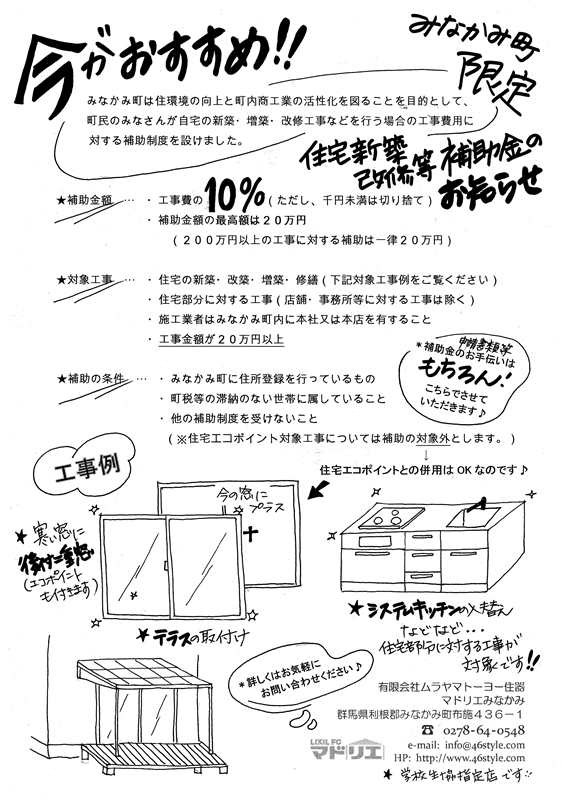 今がおすすめ!!
みなかみ町
限定
みなかみ町は住環境の向上と町内商工業の活性化を図ることを目的として、
町民のみなさんが自宅の新築・増築・改修工事などを行う場合の工事費用に
対する補助制度を設けました。
住宅新築
改修等 補助金の
お知らせ
★補助金額 … ・工事費の10%(ただし、千円未満は切り捨て)
・補助金額の最高額は20万円
(200万円以上の工事に対する補助は一律20万円)
★対象工事 … ・住宅の新築・改築・増築・修繕(下記対象工事例をご覧ください)
・住宅部分に対する工事(店舗・事務所等に対する工事は除く)
・施工業者はみなかみ町内に本社又は本店を有すること
・工事金額が20万円以上
申請書類等
*補助金のお手伝いは
もちろん!
こちらでさせて
いただきます♪
★補助の条件 … ・みなかみ町に住所登録を行っているもの
・町税等の滞納のない世帯に属していること
・他の補助制度を受けないこと
(※住宅エコポイント対象工事については補助の対象外とします。)
↓
住宅エコポイントとの併用はOKなのです♪
工事例
今の窓に
プラス
★寒い窓に
後付二重窓
(エコポイント
も付きます)
★システムキッチンの入替え
などなど...
住宅部分に対する工事が
対象です!!
★テラスの取付け
*詳しくはお気軽に
お問い合わせください♪
有限会社ムラヤマトーヨー住器
マドリエみなかみ
群馬県利根郡みなかみ町布施436-1
☎ 0278-64-0548
e-mail: info@46style.com
HP: http://www.46style.com
LIXIL FC
マドリエ
★学校生協指定店です